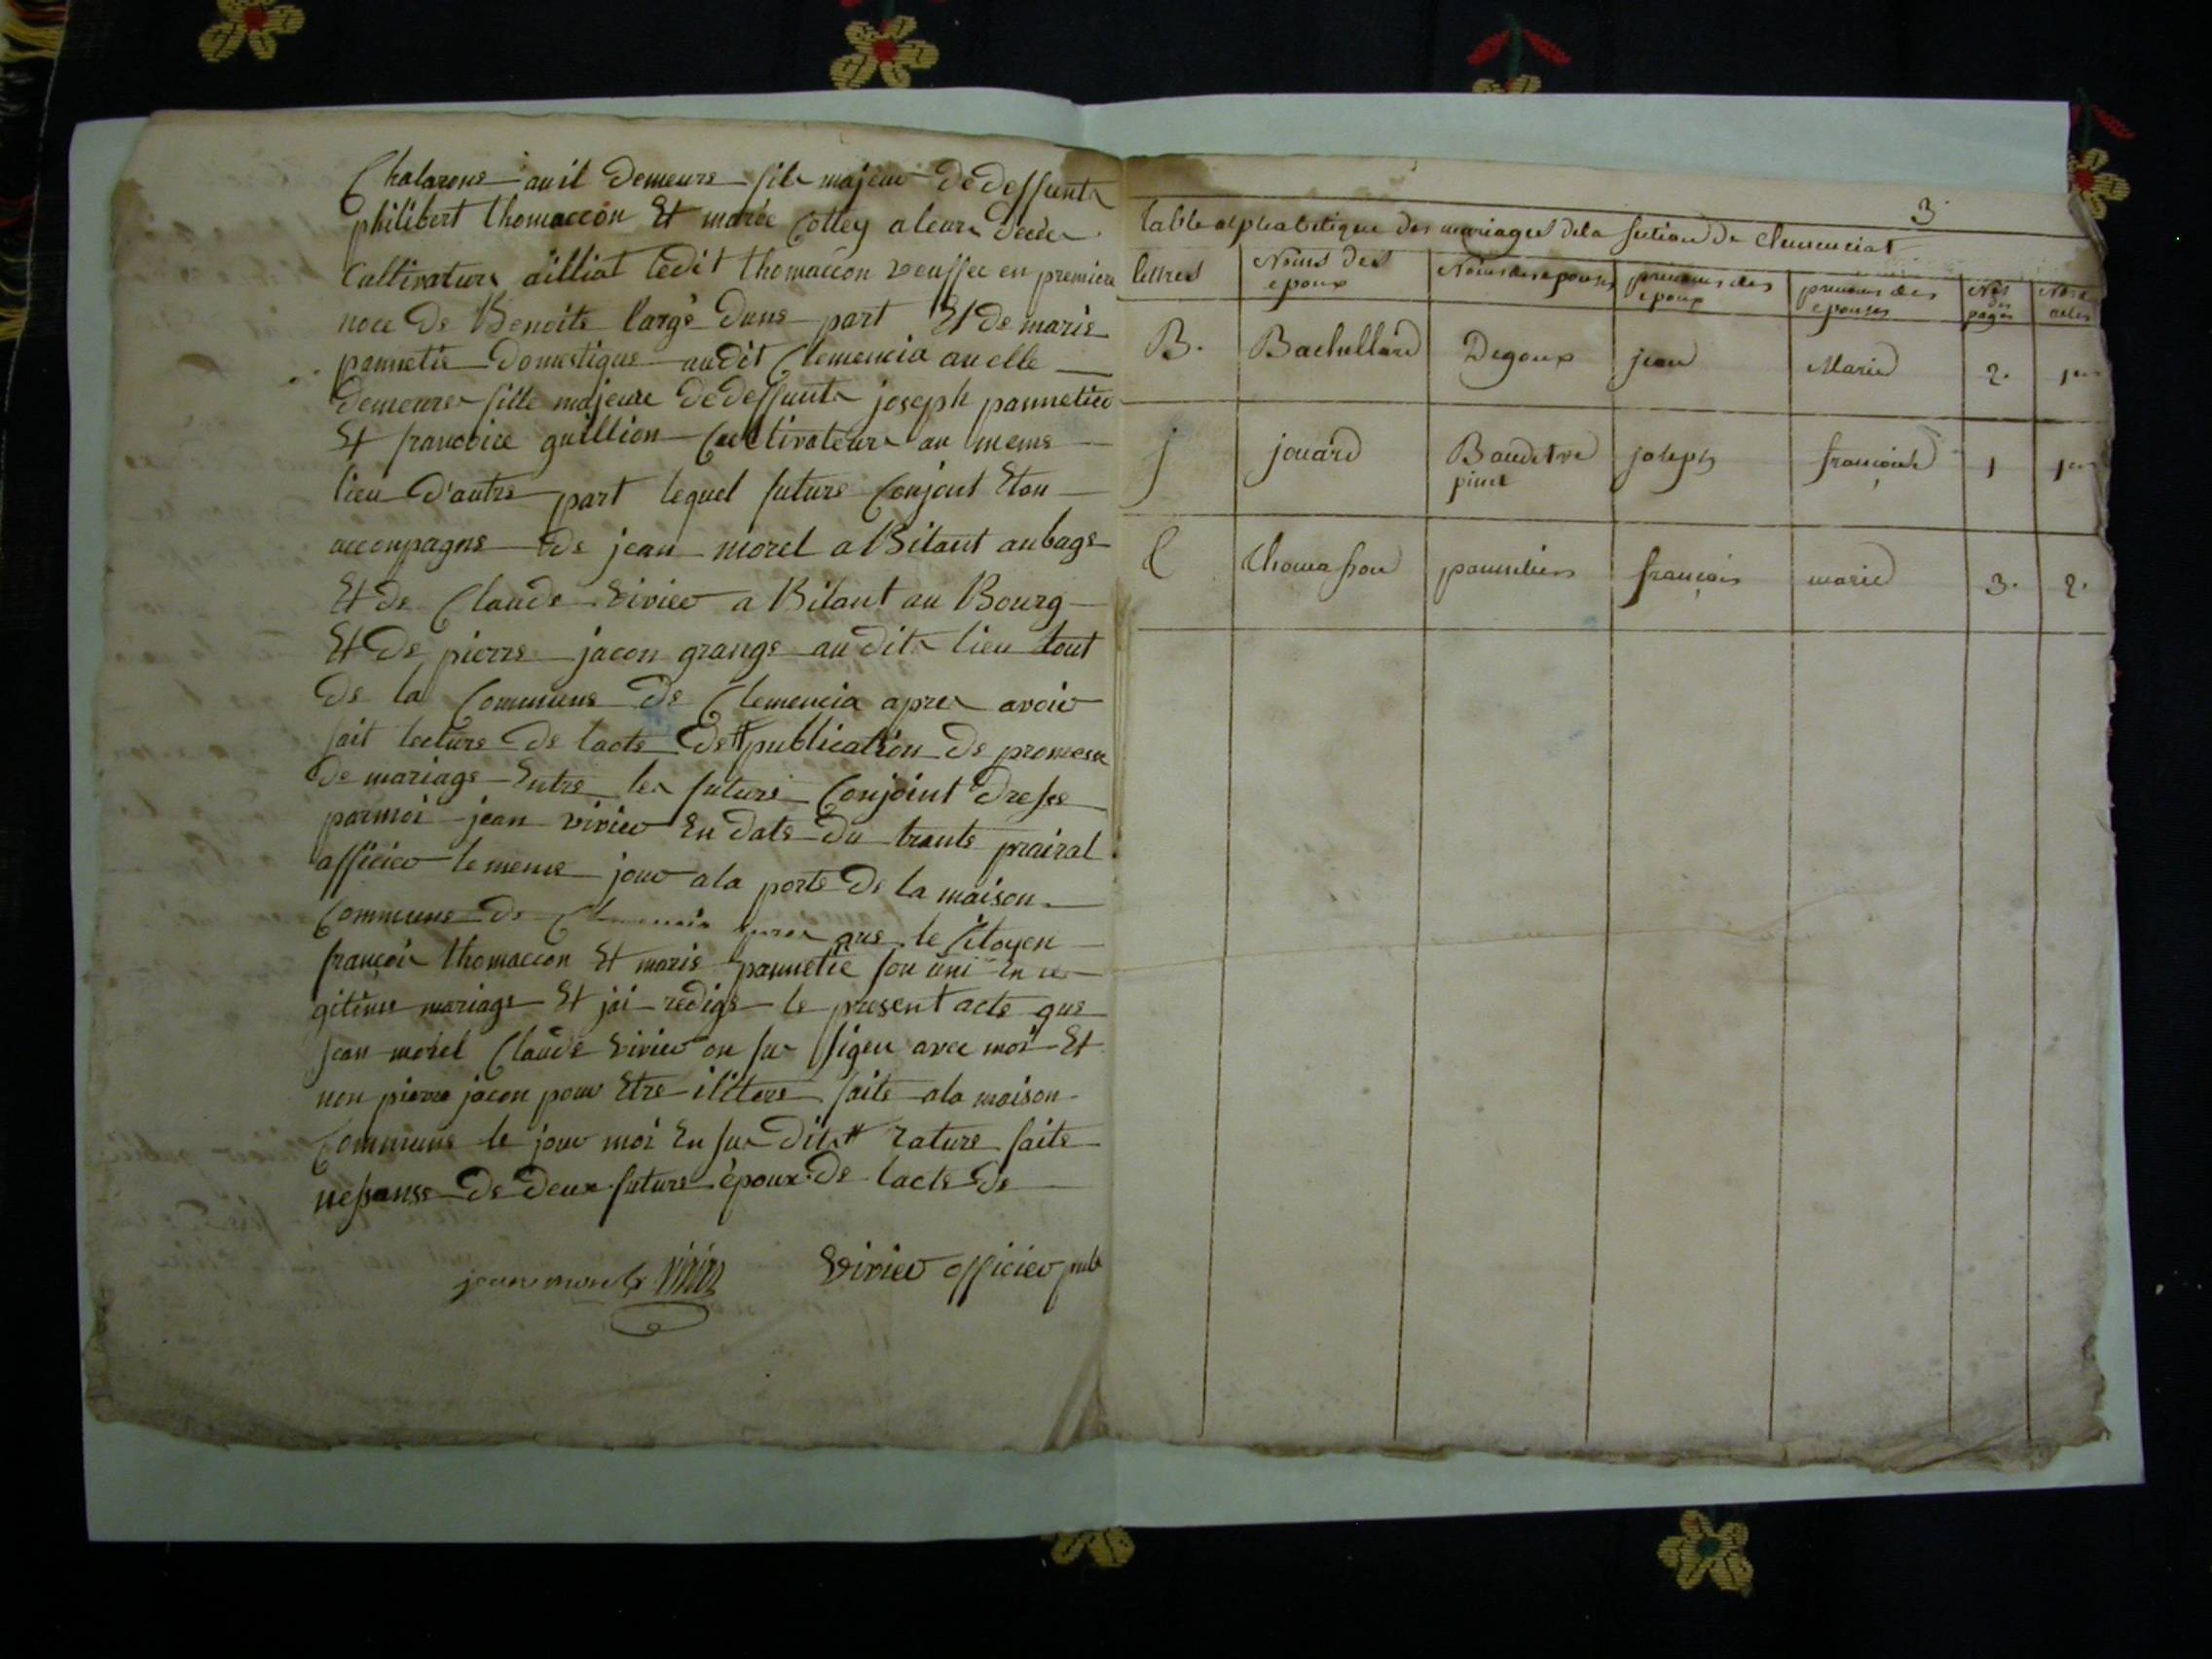 Chalarone auil demeure fils majeur de deffunts
philibert thomaccon Et marie Colley a leurs deces
Cultivateurs ailliat ledit thomaccon veuffee en premiere
noce de Benoite largé dune part Et de marie
pannetie domestique audit Clemencia au elle
demeure fille majeure de deffunts joseph pannetier
Et francoice guillion Cultivateurs au meme
lieu d'autre part lequel future Conjout Eton
acconpagne de jean morel a Bitant au bage
Et de Claude vivier a Bitant au Bourg
Et de pierre jacon grange au dit lieu tout
de la Commune de Clemencia apres avoir
fait lecture de lacte de # publication de promesse
de mariage Entre les future Conjoint dresse
par moi jean vivier En date du trante prairal
afficier le meme jour a la porte de la maison
Commune de que le Citoyen
françois thomaccon Et marie pannetie son uni en le
gitime mariage Et jai redige le present acte que
jean morel Claude vivier on su signer avec moi Et
non pierre jacon pour Etre ilitere faite a la maison
Commune le jour moi En sus dits # rature faite
nessanse de deux future époux de lacte de
jean morel vivier vivier officier pub
3
table alphabetique des mariages de la section de Clemenciat
lettres Noms des epoux Noms des epouses prenoms des epoux prenoms des epouses Nos des pages Nos des actes
B. Bachellard Degoux jean Marie 2. 1er
j jouard Baudet ve pinet joseph françoise 1 1er
t thomasson pannetier françois marie 3. 2.